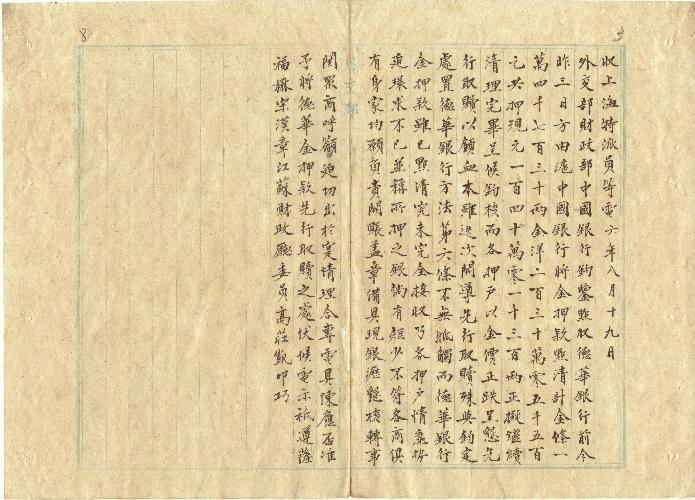 5
8
收上海特派員等電 六年八月十九日
外交部財政部中國銀行鈞鑒點收德華銀行前今
昨三日方由滬中國銀行將金押款點清計金條一
萬四千七百三十兩金洋二百三十萬零五千五百
元共押現元一百四十萬零一千三百兩正擬繼續
清理完畢呈候鈞核而各押戶以金價正跌呈懇先
行取贖以顧血本雖迭次開導先行取贖殊與鈞定
處置德華銀行方法第六條不無牴觸而德華銀行
金押款雖已點清究未完全接收乃各押戶情急勢
迫環求不已並稱所押之銀倘有短少不符各商俱
有身家均願負責開賬蓋章備具現銀瀝懇核轉事
關眾商呼籲迫切出於寔情理合專電具陳應否准
予將德華金押款先行取贖之處伏候電示祇遵薩
福楙宋漢章江蘇財政廳委員高莊凱叩巧